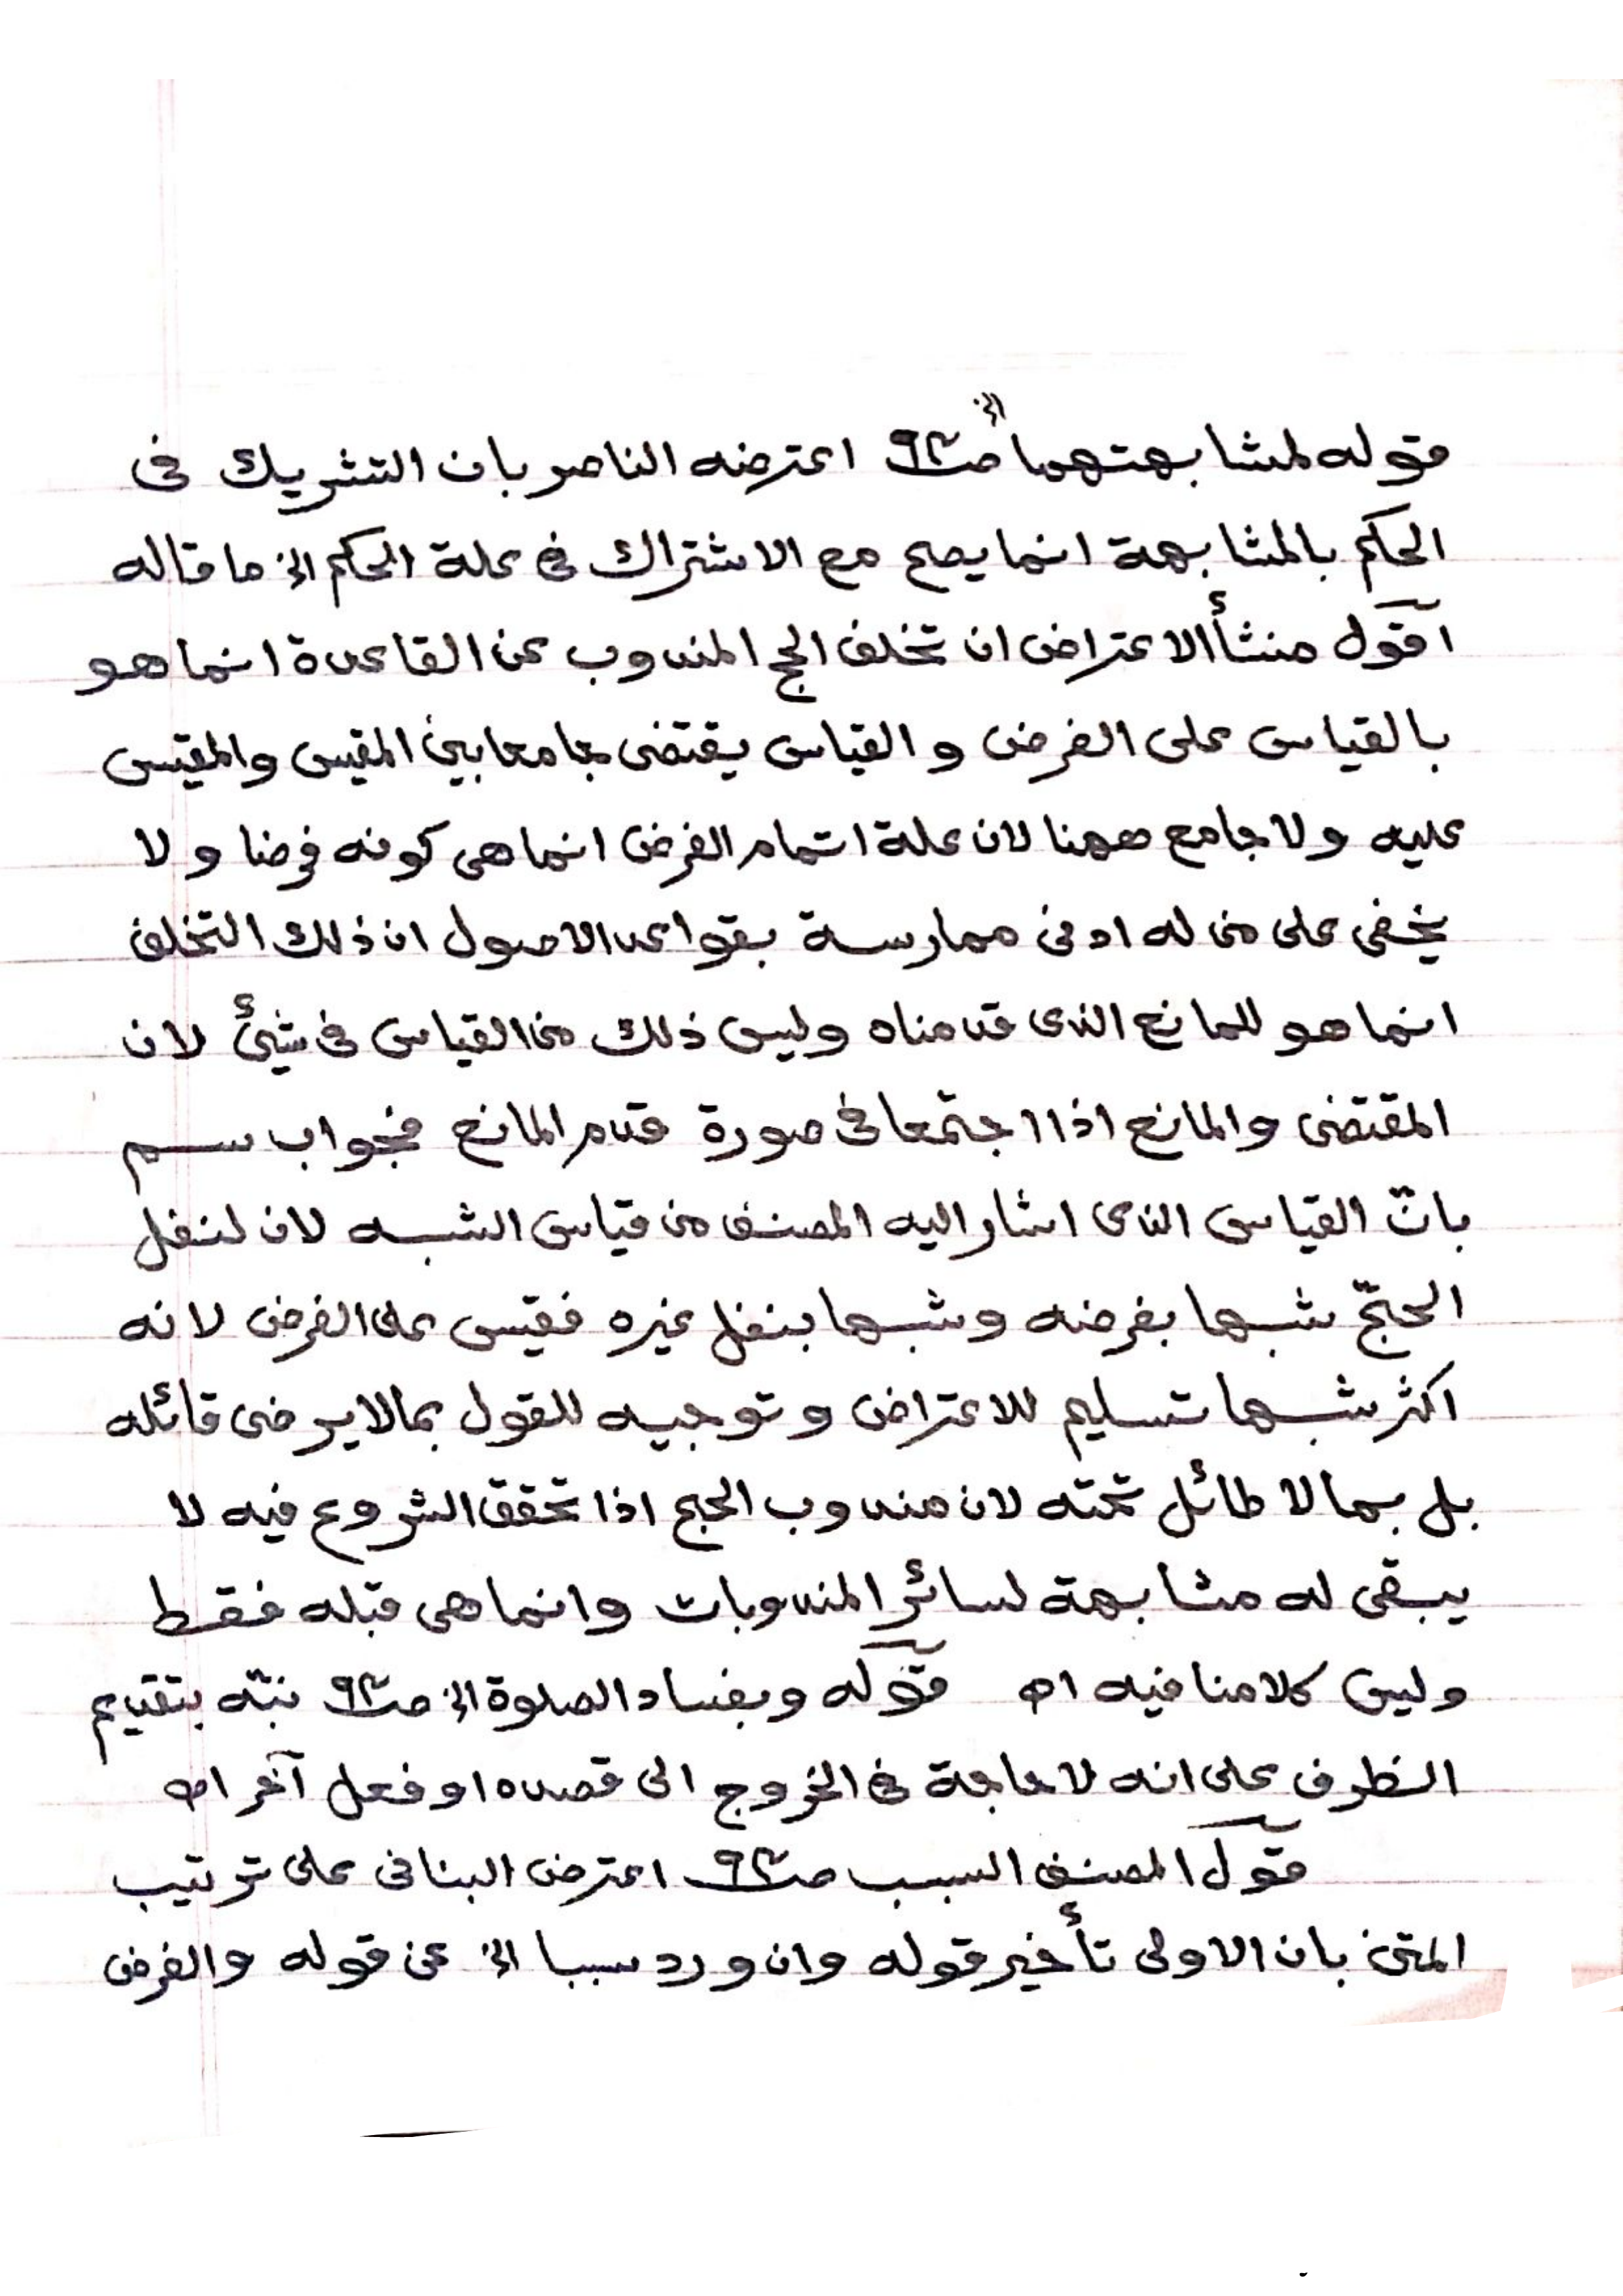 الخ
قوله لمشابهتهما صـ٩٢ اعترضه الناصر بان التشريك فى
الحكم بالمشابهة انما يصح مع الاشتراك فى علة الحكم الخ ما قاله
اقول منشأ الاعتراض ان تخلف الحج المندوب عن القاعدة انما هو
بالقياس على الفرض والقياس يقتضى جامعا بين المقيس والمقيس
عليه ولا جامع ههنا لان علة اتمام الفرض انما هى كونه فرضا ولا
يخفى على من له ادنى ممارسة بقواعد الاصول ان ذلك التخلف
انما هو للمانع الذى قدمناه وليس ذلك من القياس فى شيئ لان
المقتضى والمانع اذا اجتمعا فى صورة قدم المانع فجواب سم
بانّ القياس الذى اشار اليه المصنف من قياس الشبه لان لنفل
الحجّ شبها بفرضه وشبها بنفل غيره فقيس على الفرض لانه
اكثر شبها تسليم للاعتراض وتوجيه للقول بما لا يرضى قائله
بل بما لا طائل تحته لان مندوب الحج اذا تحقق الشروع فيه لا
يبقى له مشابهة لسائر المندوبات وانما هى قبله فقط
وليس كلامنا فيه اه قوله وبفساد الصلوة الخ صـ٩٢ نبّه بتقديم
الظرف على انه لا حاجة فى الخروج الى قصده او فعل آخر اه
قول المصنف السبب صـ٩٢ اعترض البنانى على ترتيب
المتن بان الاولى تأخير قوله وان ورد سببا الخ عن قوله والفرض